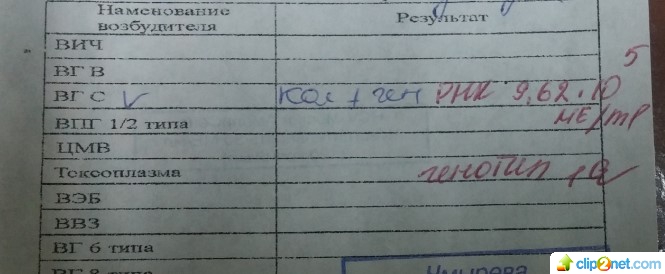 Наменование возбудителя Результат
ВИЧ
ВГ В
ВГ С кол + ген РНК 9,62 · 10 5
МЕ/
ВПГ 1/2 типа
ЦМВ
Токсоплазма генотип 1
ВЭБ
ВВЗ
ВГ 6 типа
ВГ 8 типа
clip2net.com